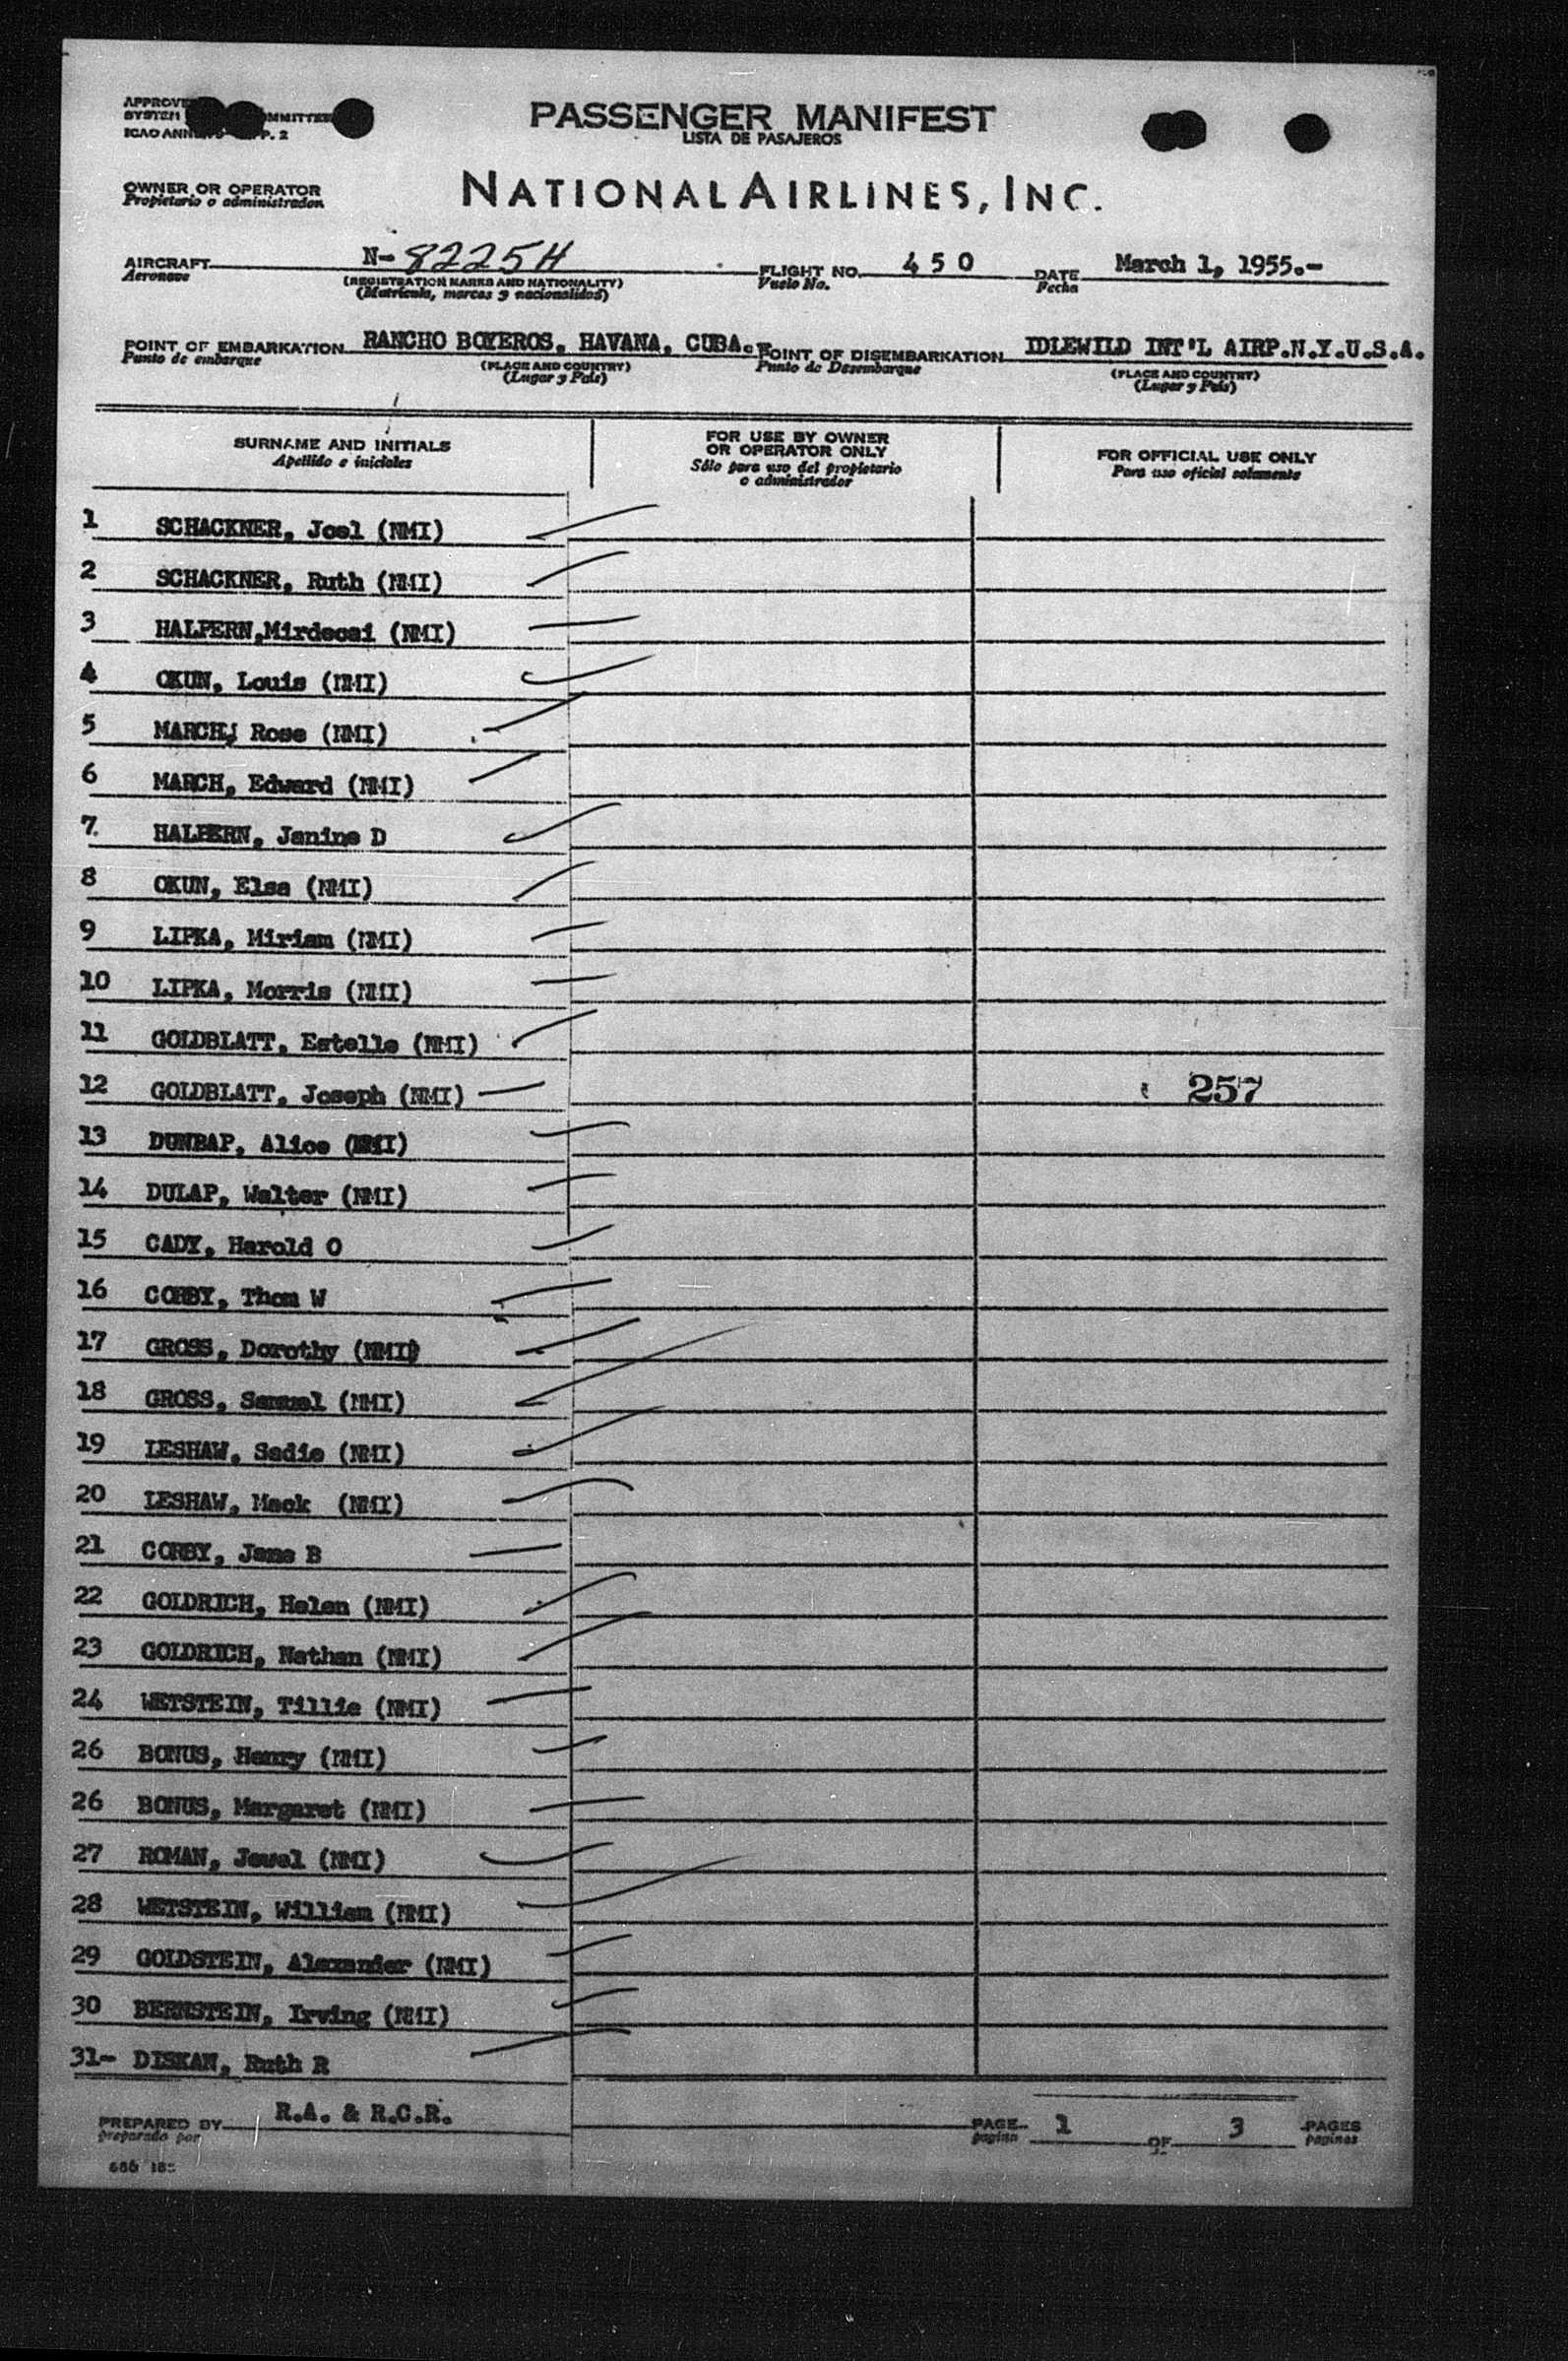 APPROVE
SYSTEM MMITTEE
ICAO ANN P. 2
PASSENGER MANIFEST
LISTA DE PASAJEROS
OWNER OR OPERATOR
Propietario o administrador
NATIONAL AIRLINES, INC.
AIRCRAFT N-8225H FLIGHT NO. 450 DATE March 1, 1955.-
Aeronave (REGISTRATION MARKS AND NATIONALITY) Vuelo No. Fecha
(Matrícula, marcas y nacionalidad)
POINT OF EMBARKATION RANCHO BOYEROS, HAVANA, CUBA. POINT OF DISEMBARKATION IDLEWILD INT'L AIRP.N.Y.U.S.A.
Punto de embarque (PLACE AND COUNTRY) Punto de Desembarque (PLACE AND COUNTRY)
(Lugar y País) (Lugar y País)
SURNAME AND INITIALS
Apellido e iniciales
FOR USE BY OWNER
OR OPERATOR ONLY
Sólo para uso del propietario
o administrador
FOR OFFICIAL USE ONLY
Para uso oficial solamente
1 SCHACKNER, Joel (NMI)
2 SCHACKNER, Ruth (NMI)
3 HALPERN,Mirdecai (NMI)
4 OKUN, Louis (NMI)
5 MARCH, Rose (NMI)
6 MARCH, Edward (NMI)
7. HALPERN, Janine D
8 OKUN, Elsa (NMI)
9 LIPKA, Miriam (NMI)
10 LIPKA, Morris (NMI)
11 GOLDBLATT, Estelle (NMI)
12 GOLDBLATT, Joseph (NMI) 257
13 DUNBAP, Alice (NMI)
14 DULAP, Walter (NMI)
15 CADY, Harold O
16 CORBY, Thom W
17 GROSS, Dorothy (NMI)
18 GROSS, Samuel (NMI)
19 LESHAW, Sadie (NMI)
20 LESHAW, Mack (NMI)
21 CORBY, Jane B
22 GOLDRICH, Helen (NMI)
23 GOLDRICH, Nathan (NMI)
24 WETSTEIN, Tillie (NMI)
26 BONUS, Henry (NMI)
26 BONUS, Margaret (NMI)
27 ROMAN, Jewel (NMI)
28 WETSTEIN, William (NMI)
29 GOLDSTEIN, Alexander (NMI)
30 BERNSTEIN, Irving (NMI)
31- DISKAN, Ruth R
PREPARED BY R.A. & R.C.R. PAGE 1 OF 3 PAGES
preparado por pagina paginas